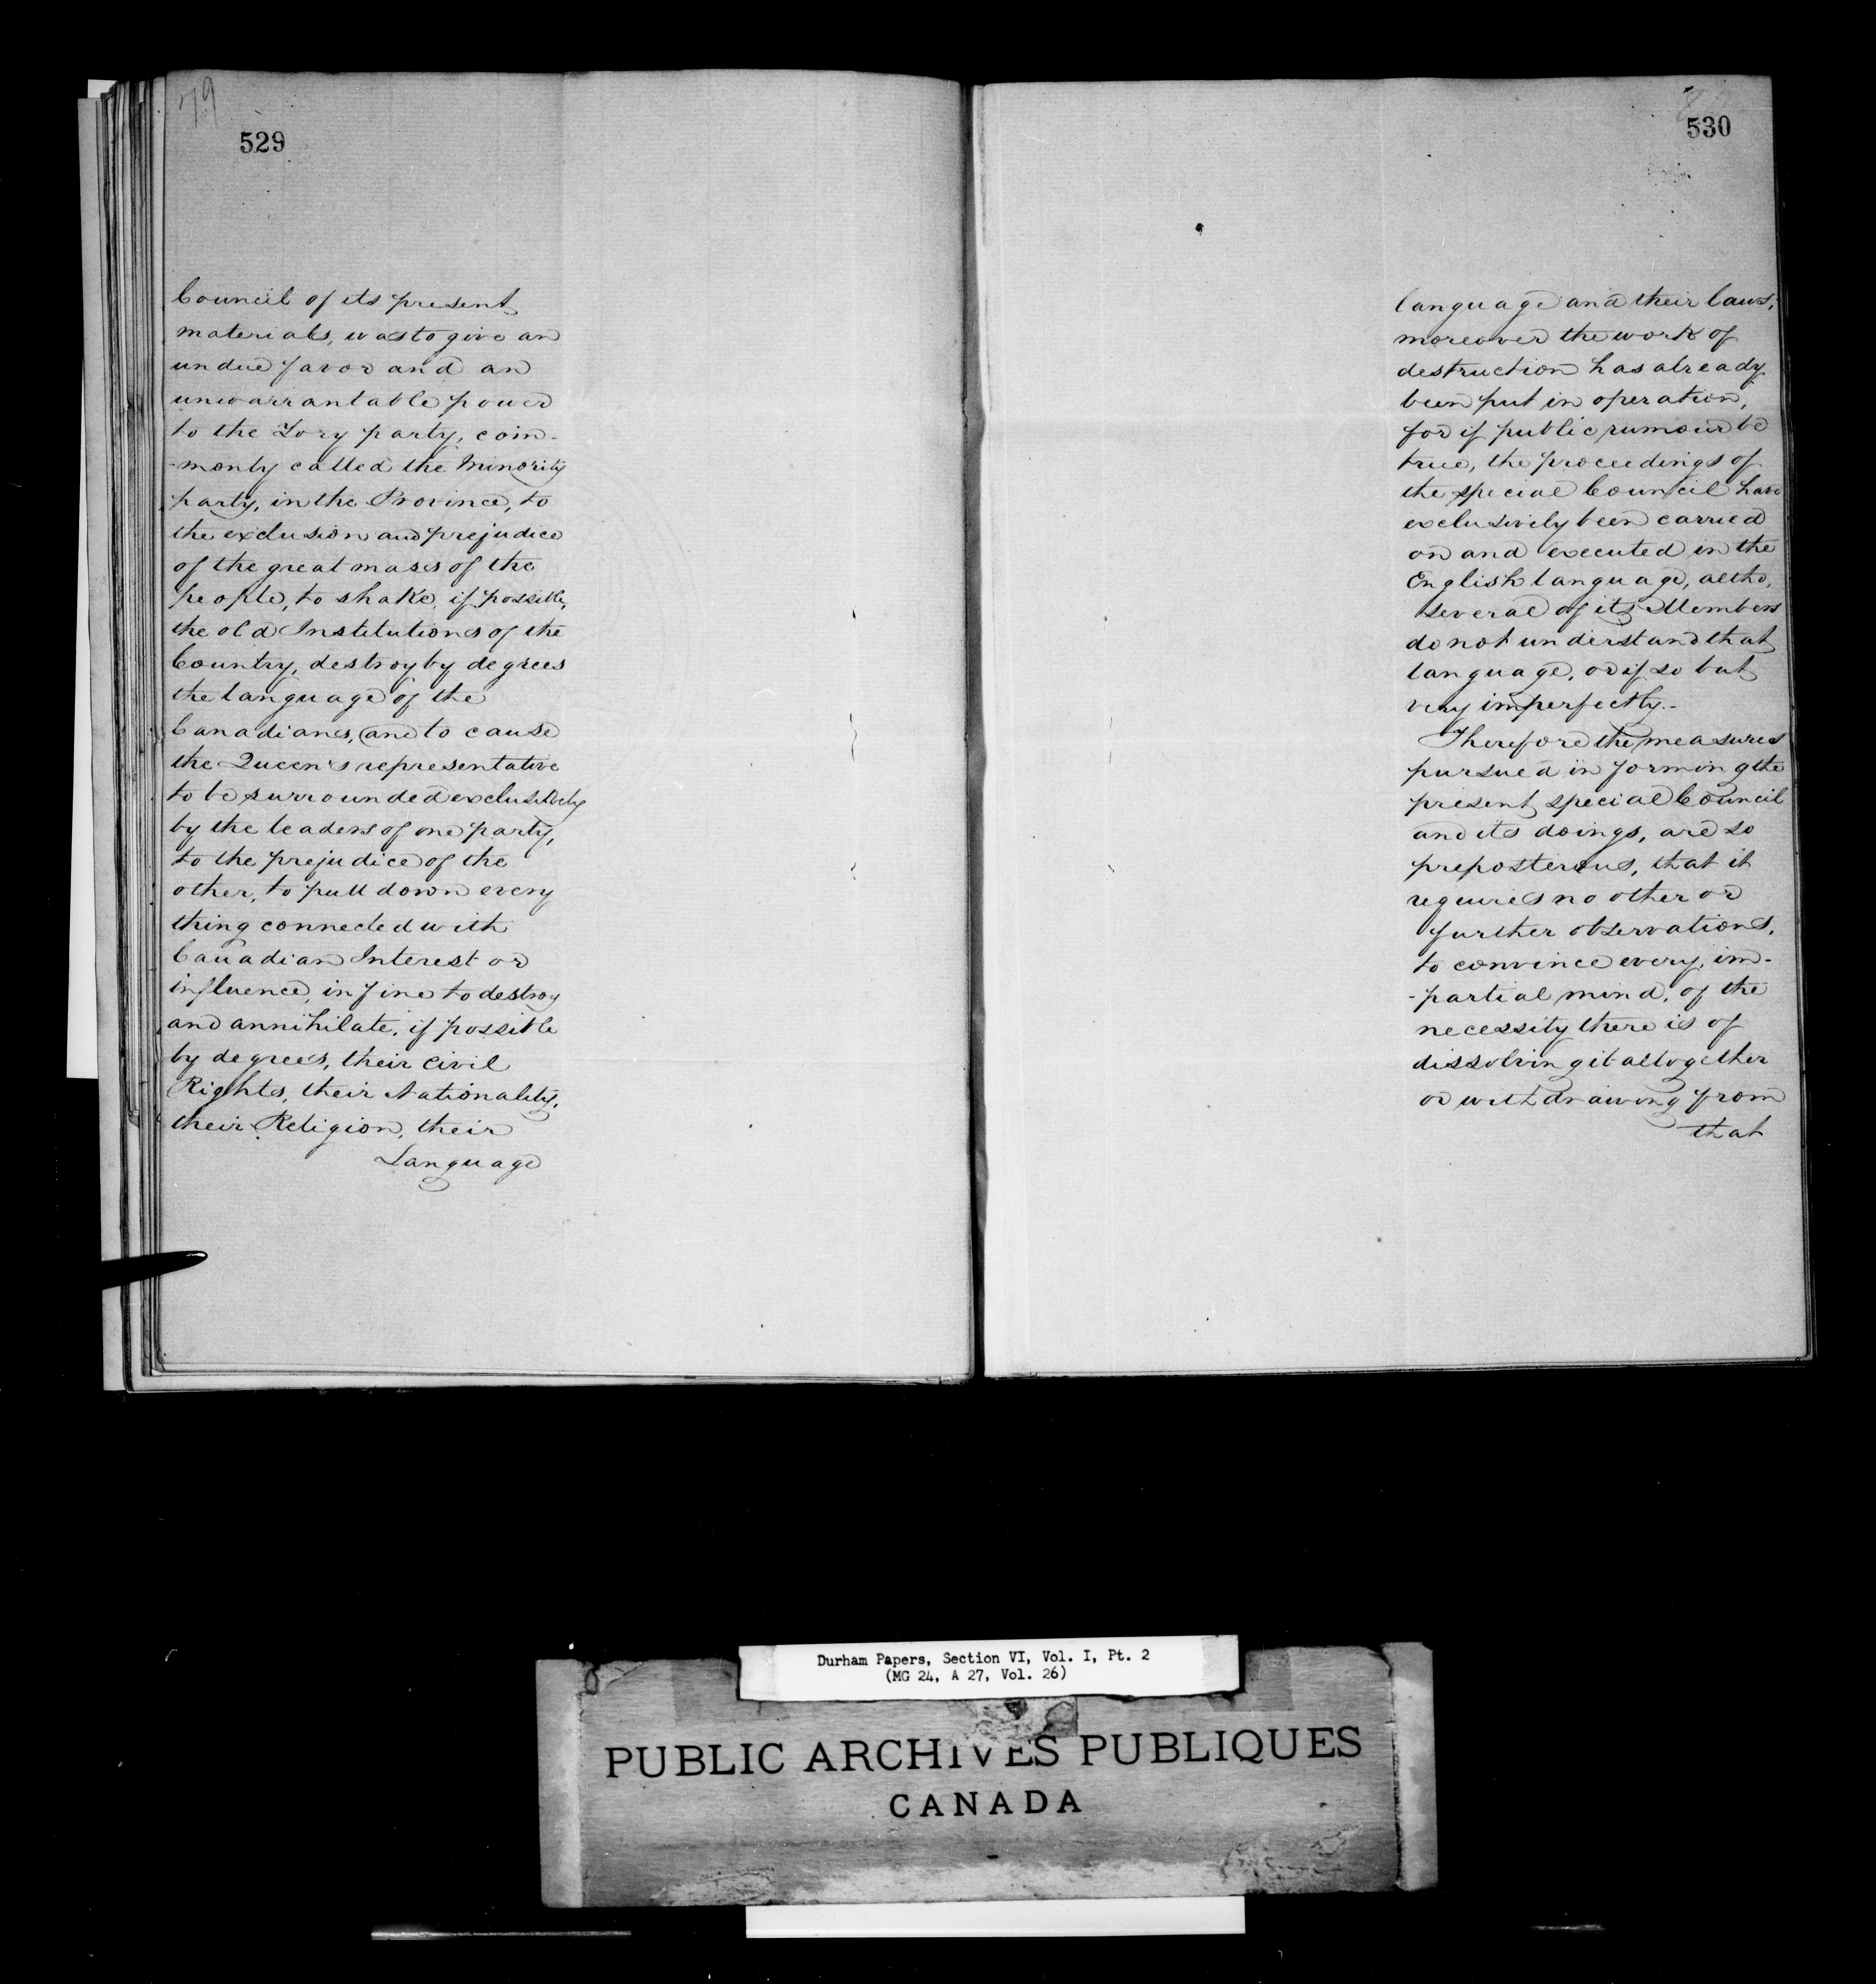 79
529
Council of its present
materials, was to give an
undue favor and an
unwarrantable power
to the Tory party, com-
-monly called the Minority
party, in the Province, to
the exclusion and prejudice
of the great mass of the
people, to shake, if possible,
the old Institutions of the
Country, destroy by degrees
the language of the
Canadians, and to cause
the Queen's representative
to be surrounded exclusively
by the leaders of one party,
to the prejudice of the
other, to pull down every
thing connected with
Canadian Interest or
influence, in fine to destroy
and annihilate, if possible
by degrees, their civil
Rights, their Nationality,
their Religion, their
Language
530
language and their laws;
moreover the work of
destruction has already
been put in operation,
for if public rumour be
true, the proceedings of
the special Council have
exclusively been carried
on and executed in the
English language, altho,
several of its Members
do not understand that
language, or if so but
very imperfectly.-
Therefore the measures
pursued in forming the
present special Council
and its doings, are so
preposterous, that it
requires no other or
further observations,
to convince every im-
-partial mind, of the
necessity there is of
dissolving it altogether
or withdrawing from
that
Durham Papers, Section VI, Vol. I, Pt. 2
(MG 24, A 27, Vol. 26)
PUBLIC ARCHIVES PUBLIQUES
CANADA